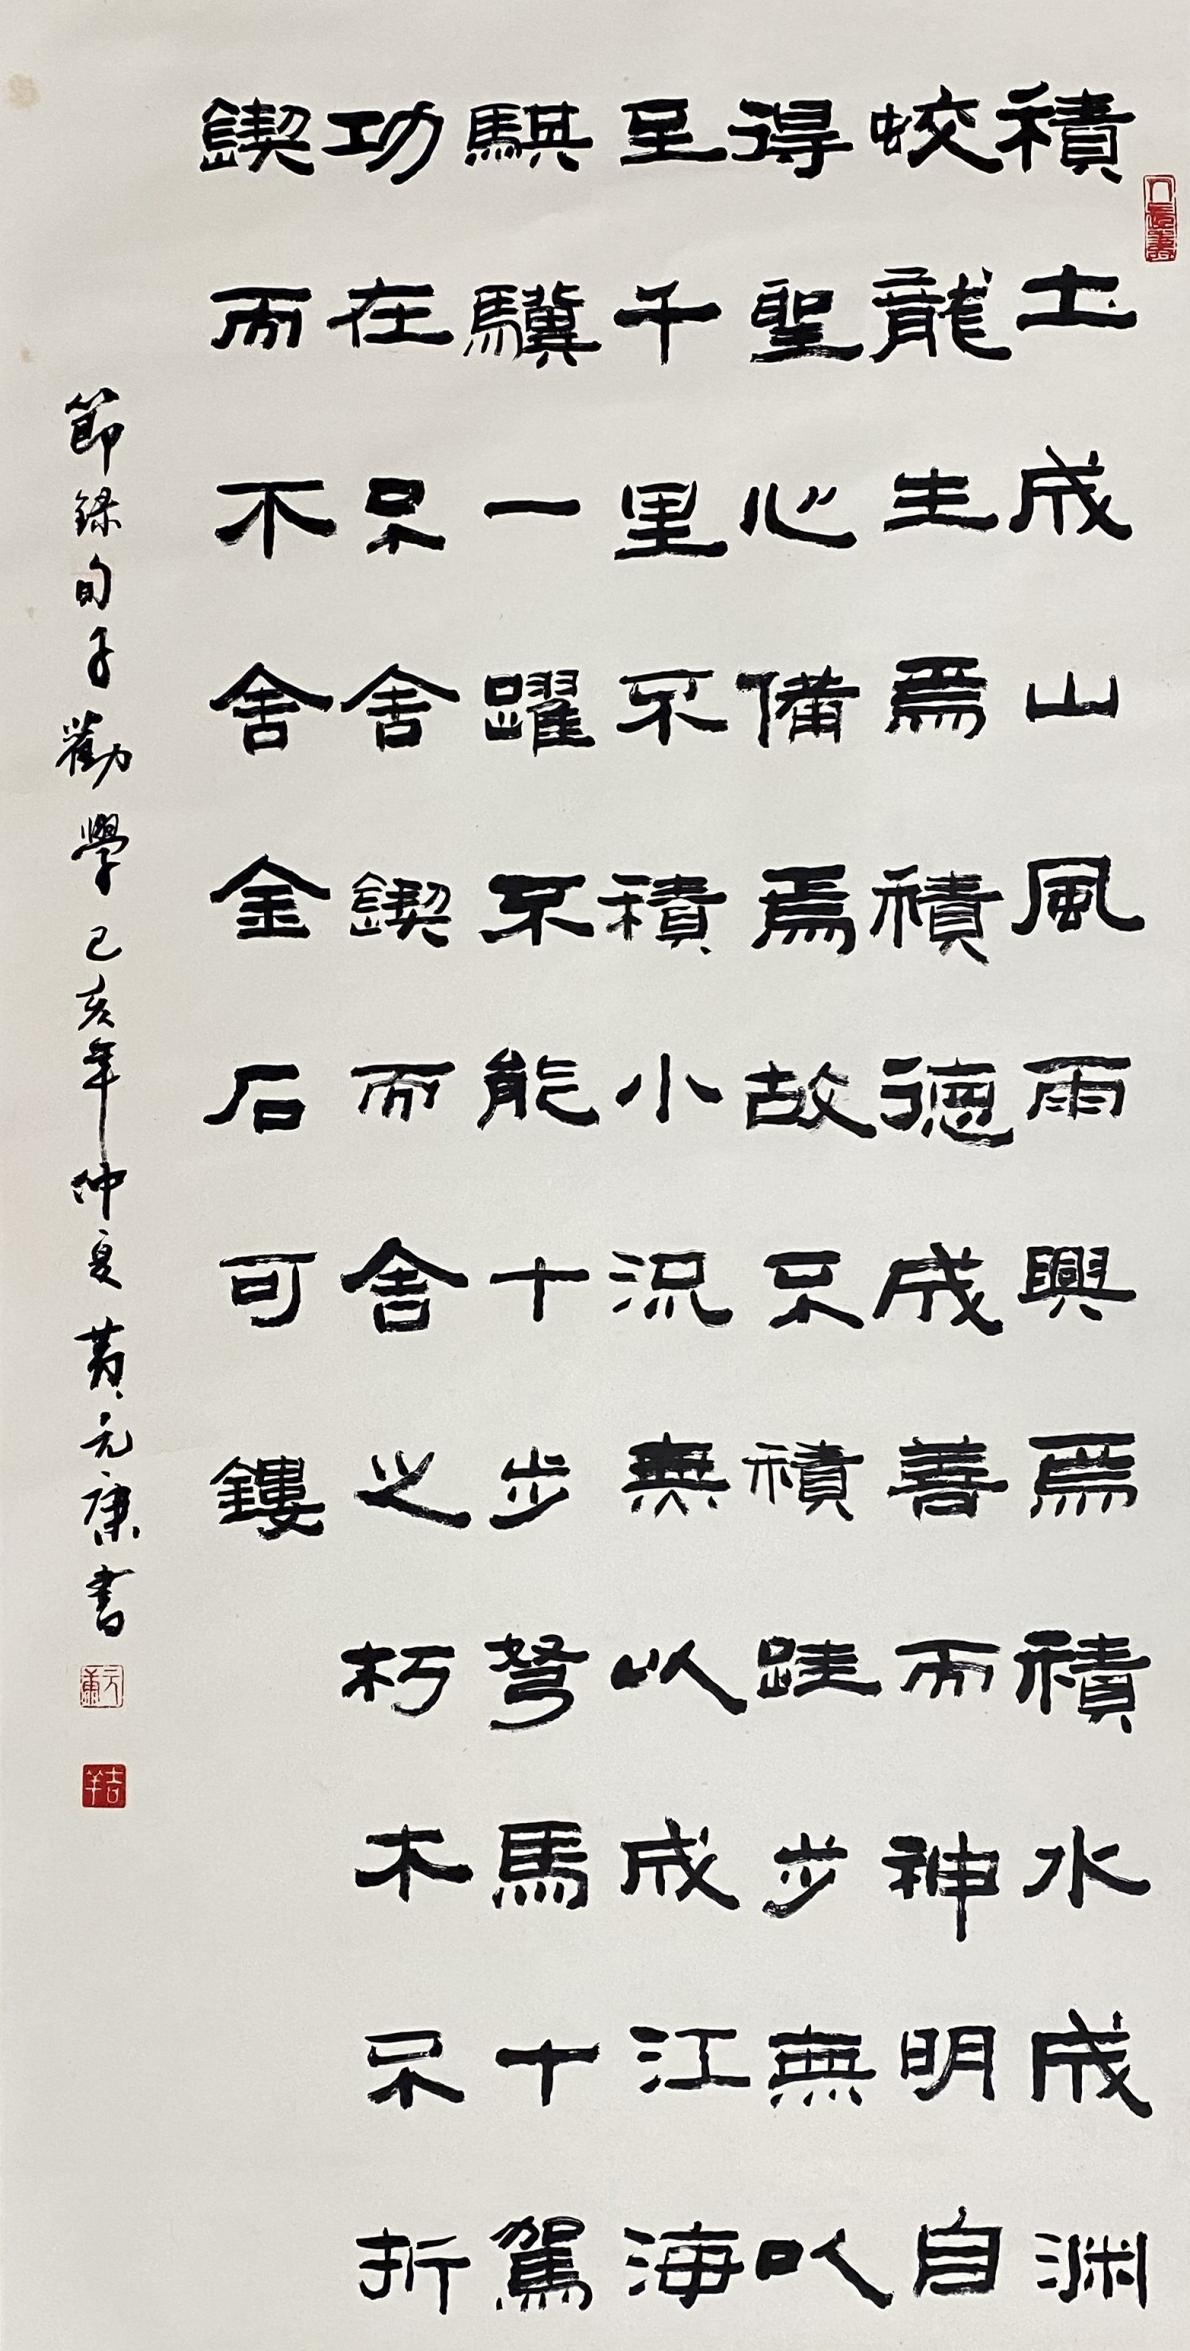 積土成山風雨興焉積水成淵
蛟龍生焉積德成善而神明自
得聖心備焉故不積跬步無以
至千里不積小況無以成江海
騏驥一躍不能十步弩馬十駕
功在不舍鍥而舍之朽木不折
鍥而不舍金石可鏤
節錄旬子勸學己亥年仲夏黃元康書
元康
吉羊